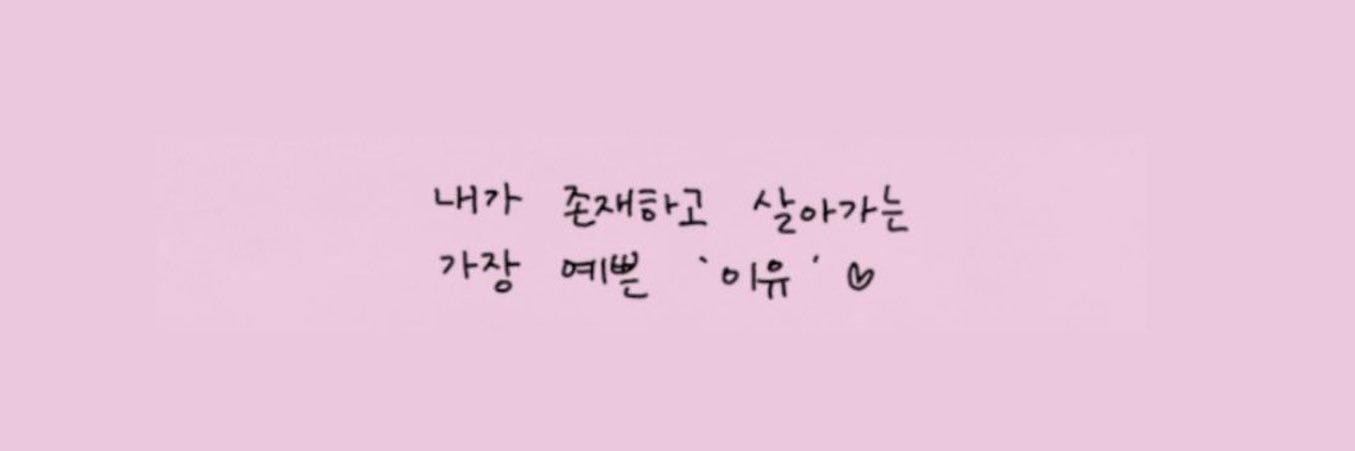 내가 존재하고 살아가는
가장 예쁜 '이유' ♡